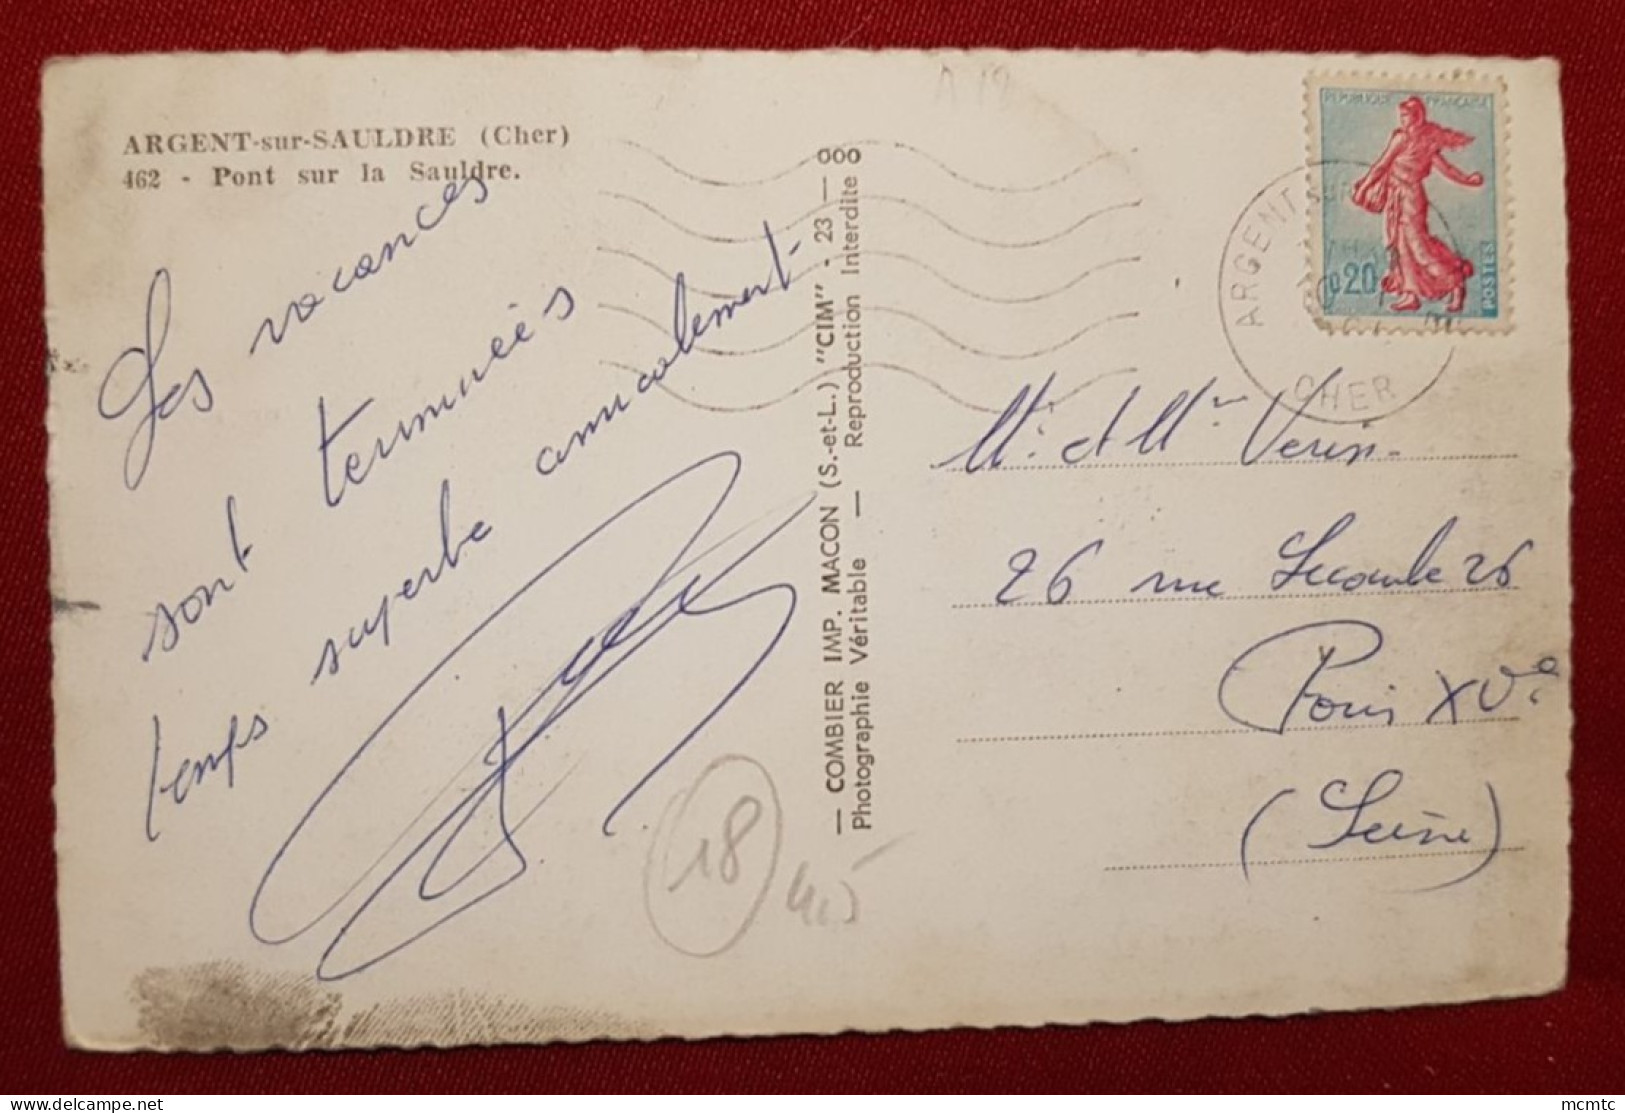 ARGENT-sur-SAULDRE (Cher)
462 - Pont sur la Sauldre.
Les vacances
sont terminées
temps superbe amicalement
— COMBIER IMP. MACON (S.-et-L.) "CIM" - 23 — 000
Photographie Véritable — Reproduction Interdite
A 18
REPUBLIQUE FRANÇAISE
0,20
POSTES
ARGENT SUR
CHER
Mr et Mme Verin
26 rue Lecourbe 26
Paris XVe
(Seine)
18
mcmtc
delcampe.net